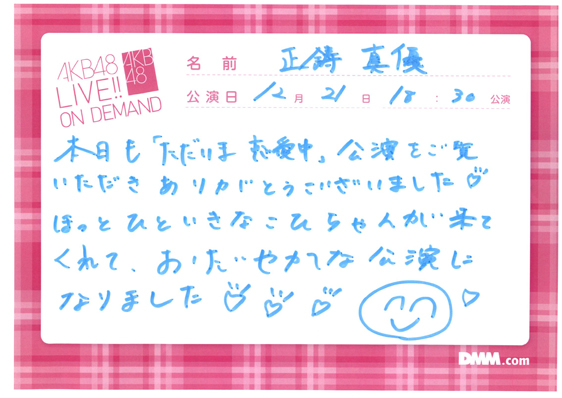 AKB48
LIVE!!
ON DEMAND
AKB
48
名前 正鋳真優
公演日 12月21日 18:30公演
本日も「ただいま恋愛中」公演をご覧
いただきありがとうございました♡
ほっとひといきなこひちゃんが来て
くれて、おだやかな公演に
なりました♡♡♡ ♡
DMM.com